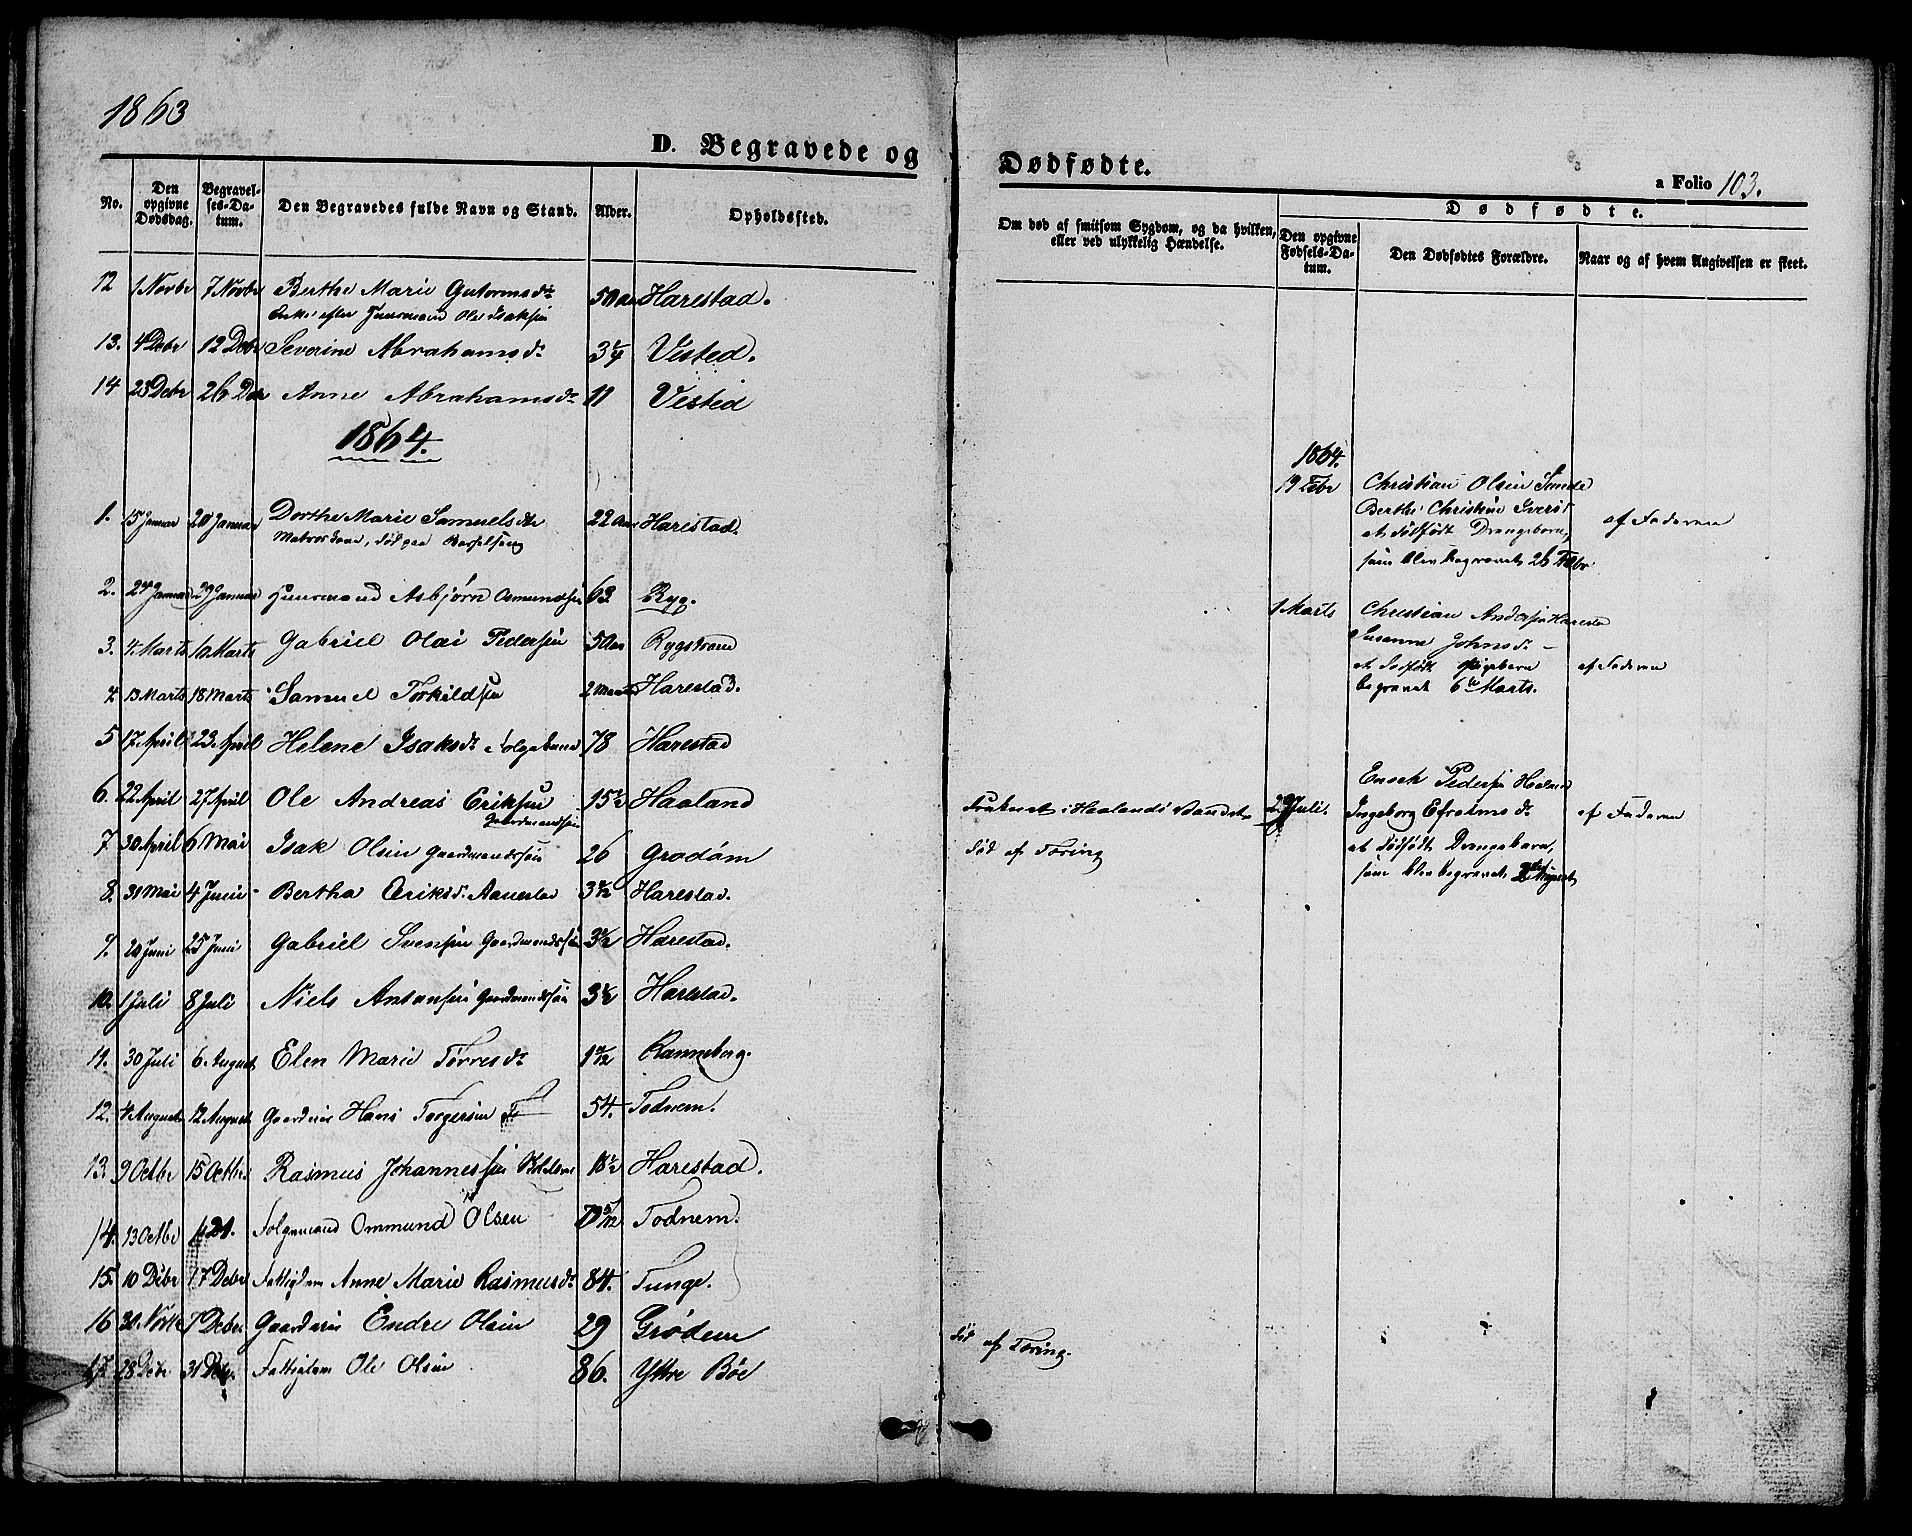 1863
D. Begravede og
No. Den opgivne Dødsdag. Begravelses-Datum. Den Begravedes fulde Navn og Stand. Alder. Opholdssted.
12 1 Novbr 7 Novbr Berthe Marie Gutormsdtr 50 Aar Harestad.
Enke efter Huusmand Ole Isaksen
13. 4 Debr 12 Debr Severine Abrahamsdr Visted.
14 23 Debr 26 Debr Anne Abrahamsdr 11 Visted
1864.
1. 15 Januar 20 Januar Dorthe Marie Samuelsdtr 22 Aar Harestad.
død paa Barselseng
2. 24 Januar 29 Januar Huusmand Asbjørn Osmundsen 63 Ryg.
3. 4 Marts 10 Marts Gabriel Olai Pedersen 50 Aar Rygstrand
4. 13 Marts 18 Marts Samuel Torkildsen 2 Harestad.
5 17 April 23 April Helene Isaksdr Folgekone 78 Harestad
6. 22 April 27 April Ole Andreas Eriksen 15½ Haaland
Gaardmandssøn
7. 30 April 6 Mai Isak Olsen Gaardmandssøn 26 Grødem
8. 31 Mai 4 Juni Bertha Eriksdr Harestad.
9. 20 Juni 25 Juni Gabriel Svensen Gaardmandssøn 3½ Harestad.
10. 1 Juli 8 Juli Niels Antonsen Gaardmandssøn 3½ Harestad.
11. 30 Juli 6. August Elen Marie Torresdr Ranneberg.
12. 4 August 12 August Gaardmand Hans Torgersen 54. Todnem.
13. 9 Octbr 15 Octbr Rasmus Johannessen 18½ Harestad.
14. 13 Octbr 21. Folgemand Ommund Olsen Todnem.
15. 10 Debr 17 Debr Fattiglem Anne Marie Rasmusdr 84. Tunge.
16 30 Novbr 7 Debr. Endre Olsen 29 Grødem
17. 28 Debr 31 Debr. Fattiglem Ole Olsen 86. Yttre Bøe
Dødfødte.
a Folio 103.
Om død af smitsom Sygdom, og da hvilken, eller ved ulykkelig Hændelse.
Dødfødte.
Den opgivne Fødsels-Datum. Den Dødfødtes Forældre. Naar og af hvem Angivelsen er skeet.
1864.
19 Febr Christian Olsen Sande
Berthe Christine Iversd
et dødfødt Drengebarn, af Faderen
som blev begravet 26 Febr
1 Marts Christian Andersen Harestad
Susanne Johnsdr
et dødfødt Pigebarn af Faderen
begravet 6te Marts.
Enoch Pedersen
Druknet i Haalands Vandet 29 Juli. Ingeborg Efraimsdr af Faderen
død af Tæring et dødfødt Drengebarn,
som blev begravet August
død af Tæring.